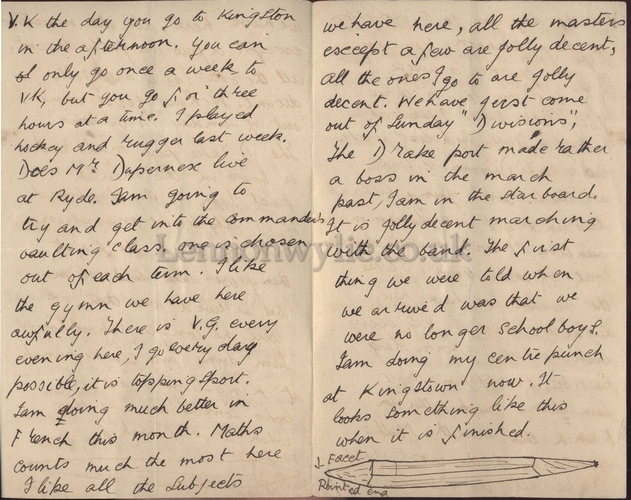 V.K the day you go to Kingston
in the afternoon. You can
only go once a week to
VK, but you go for three
hours at a time. I played
hockey and rugger last week.
Does Mr. live
at Ryde. I am going to
try and get into the commanders
vaulting class, one is chosen
out of each term. I like
the gymn we have here
awfully. There is V.G. every
evening here, I go every day
possible, it is topping sport.
I am doing much better in
French this month. Maths
counts much the most here
I like all the subjects
we have here, all the masters
except a few are jolly decent,
all the ones I go to are jolly
decent. We have just come
out of Sunday "Divisions",
The Drake port made rather
a boss in the march
past, I am in the starboard.
It is jolly decent marching
with the band. The first
thing we were told when
we arrived was that we
were no longer school boys.
I am doing my centre punch
at Kingstown now. It
looks something like this
when it is finished.
Facet
Pointed end
Lennonwylie.co.uk